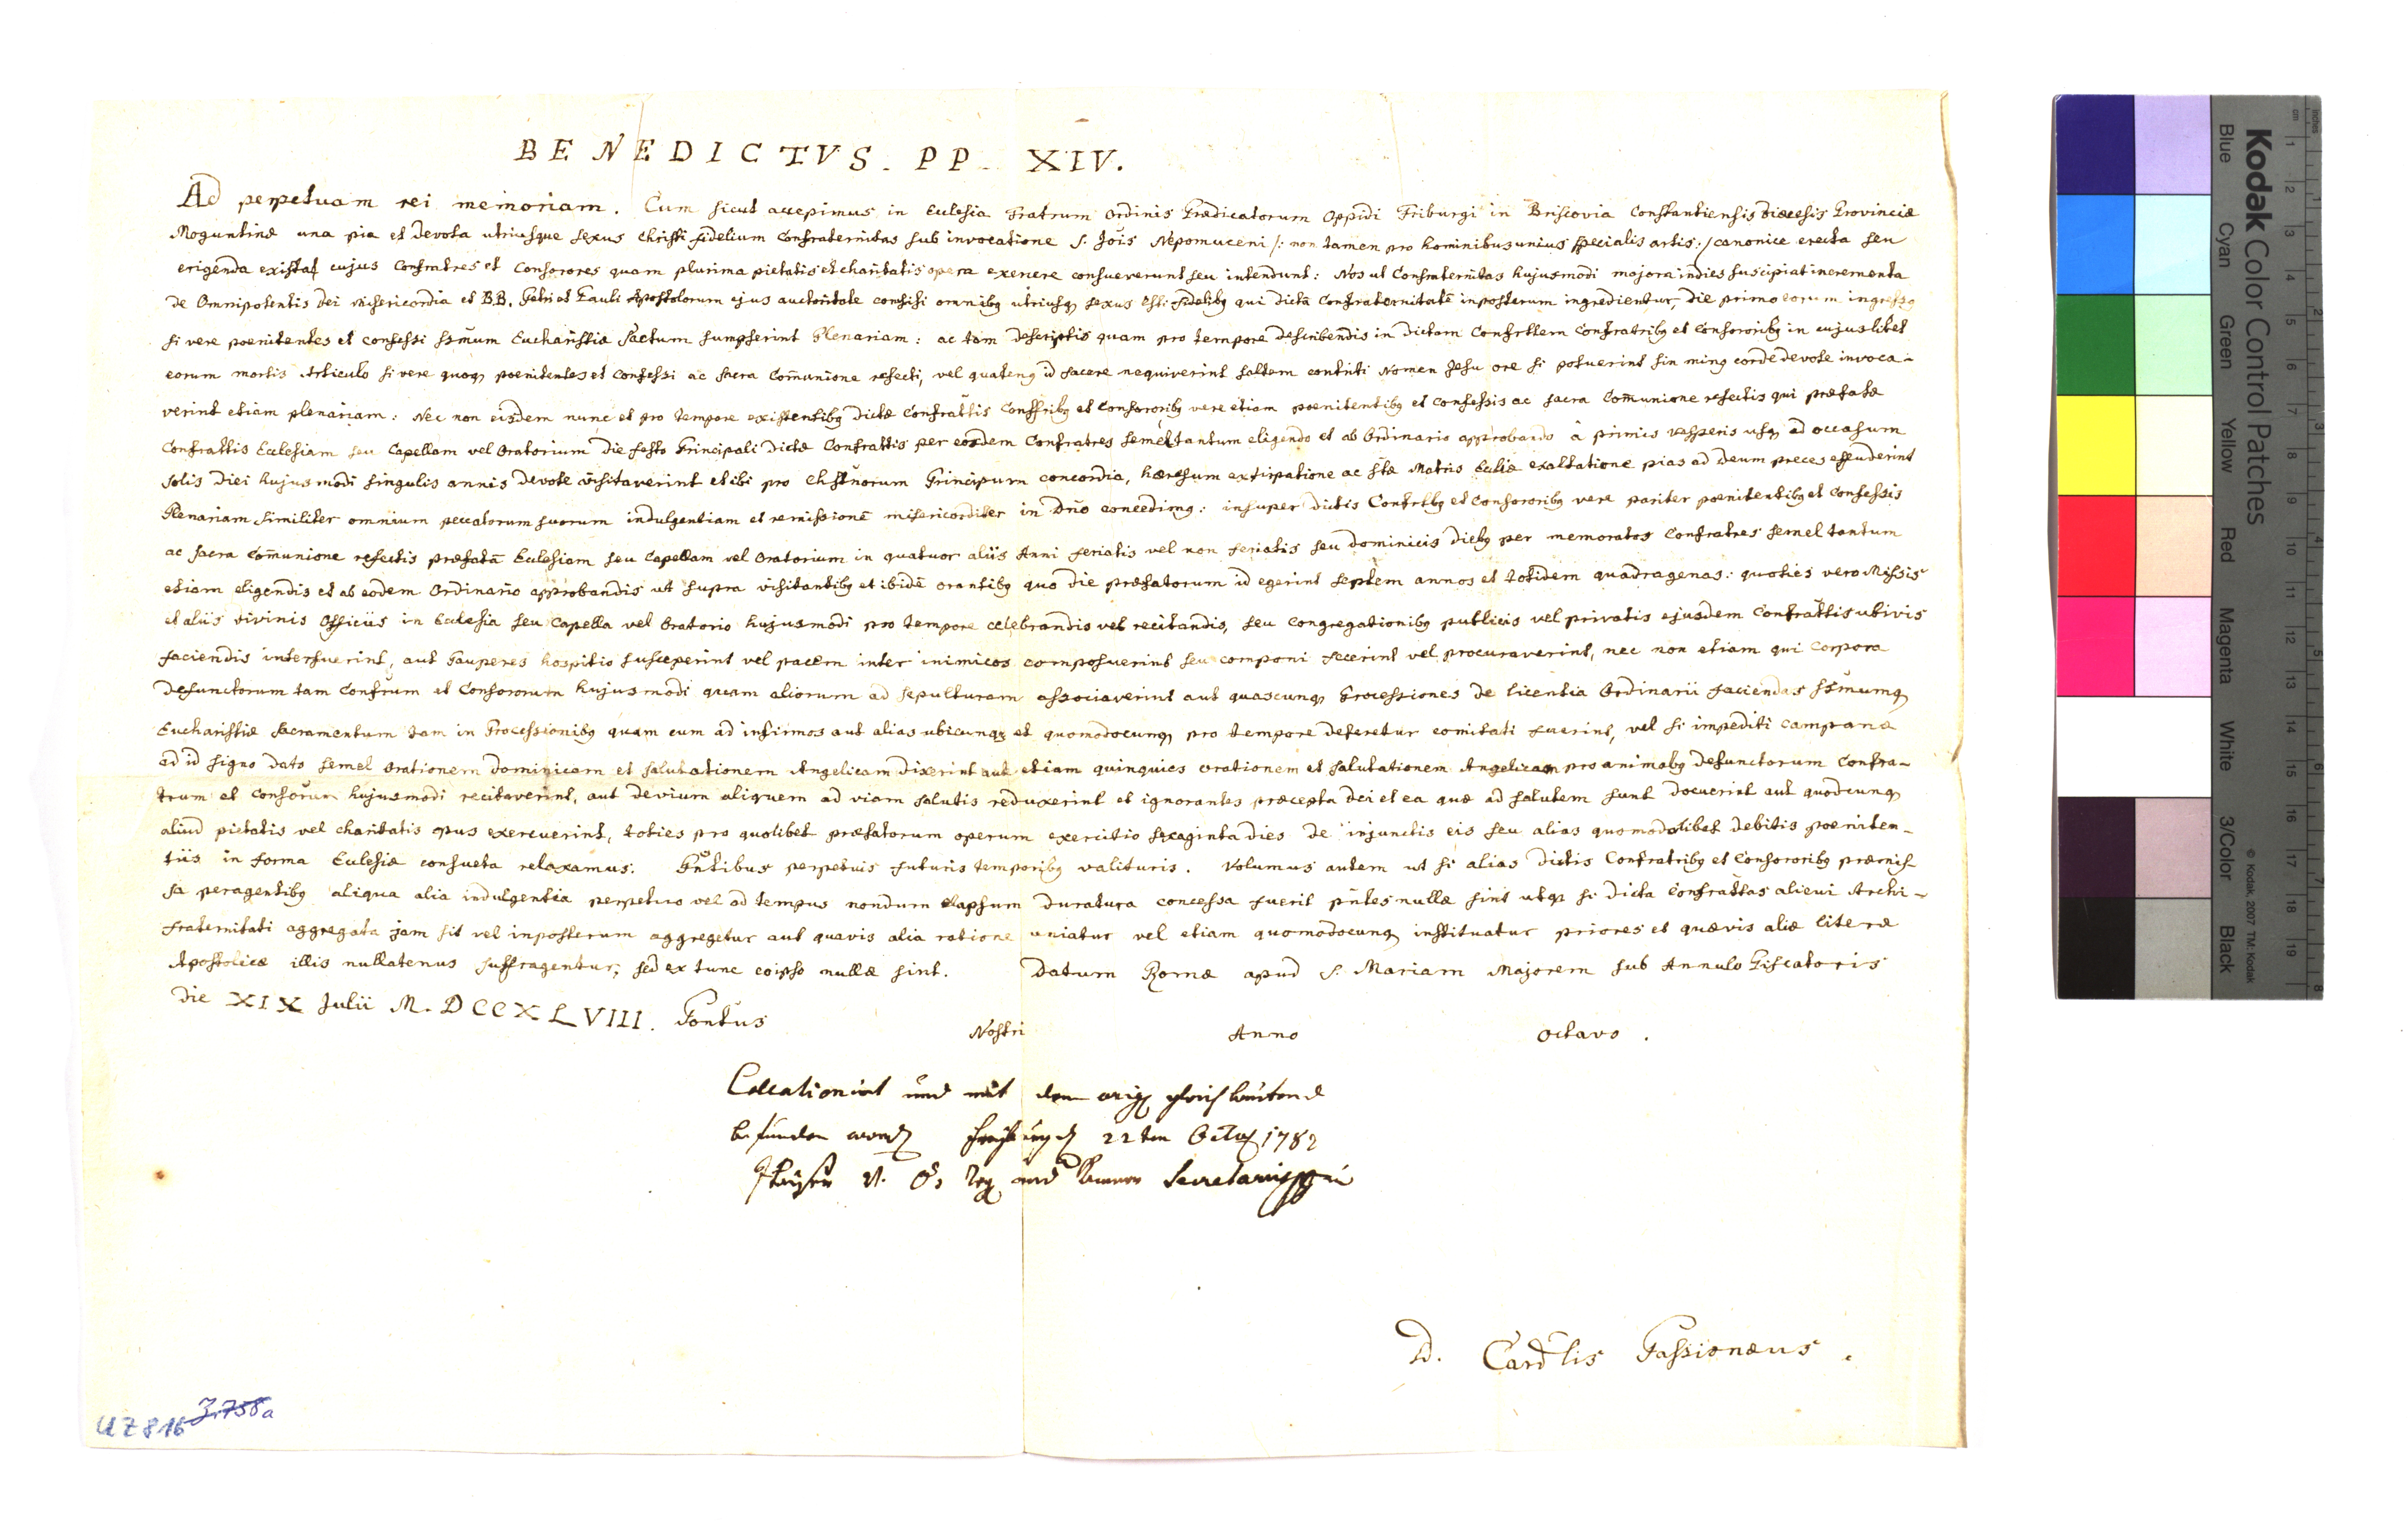 BENEDICTVS. PP. XIV.
Ad perpetuam rei memoriam. Cum sicut accepimus in Eclesia Fratrum Ordinis Prædicatorum Oppidi Friburgi in Briscovia Constantiensis Diæcesis Provinciæ
Moguntinæ una pia et devota utriusque sexus Christi fidelium Confraternitas sub invocatione S. Jois Nepomuceni /: non tamen pro hominibus unius specialis artis :/ canonice erecta seu
erigenda existat cujus Confratres et Consorores quam plurima pietatis et charitatis opera exercere consueverunt seu intendunt: Nos ut Confraternitas hujusmodi majora indies suscipiat incrementa
de Omnipotentis Dei misericordia et B.B. Petri et Pauli Apostolorum ejus auctoritate confisi omnibq utriusq sexus Chti: fidelibq qui dictã Confraternitatẽ inposterum ingredientur, die primo eorum ingressq
si vere poenitentes et confessi Ssmum Eucharistiæ Sactum sumpserint Plenariam: ac tam descriptis quam pro tempore describendis in dictam Confrttem Confratribq et Consororibq in cujuslibet
eorum mortis Articulo si vere quoq poenitentes et Confessi ac sacra Com̃unione refecti, vel quatenq id facere nequiverint saltem contriti Nomen Jesu ore si potuerint sin minq corde devote invoca-
verint etiam plenariam: Nec non eisdem nunc et pro tempore existentibq dictæ Confrattis Confribq et Consororibq vere etiam poenitentibq et confessis ac sacra Com̃unione refectis qui præfatæ
Confrattis Eclesiam seu Capellam vel Oratorium die festo Principali dictæ Confrattis per eosdem Confratres semel tantum eligendo et ab Ordinario approbando â primis vesperis usq ad occasum
solis diei hujusmodi singulis annis devote visitaverint et ibi pro Chstñorum Principum concordia, hæresum extirpatione ac Stæ Matris Ecliæ exaltatione pias ad Deum preces effuderint
Plenariam similiter omnium peccatorum suorum indulgentiam et remissionẽ misericorditer in Dño concedimq: insuper dictis Confrtbq et Consororibq vere pariter poenitentibq et Confessis
ac sacra Com̃unione refectis præfatã Eclesiam seu Capellam vel Oratorium in quatuor aliis Anni feriatis vel non feriatis seu dominicis diebq per memoratos Confratres semel tantum
etiam eligendis et ab eodem Ordinario approbandis ut supra visitantibq et ibidẽ orantibq quo die præfatorum id egerint septem annos et totidem quadragenas: quoties vero Missis
et aliis divinis Officiis in Eclesia seu Capella vel Oratorio hujusmodi pro tempore celebrandis vel recitandis, seu Congregationibq publicis vel privatis ejusdem Confrattis ubivis
faciendis interfuerint, aut Pauperes hospitio susceperint vel pacem inter inimicos composuerint seu componi fecerint vel procuraverint, nec non etiam qui Corpora
defunctorum tam Confrum et Consororum hujusmodi quam aliorum ad sepulturam associaverint aut quascunq Processiones de licentia Ordinarii faciendas Ssmumq
Eucharistiæ Sacramentum tam in Processionibq quam cum ad infirmos aut alias ubicunq et quomodocunq pro tempore deferetur comitati fuerint, vel si impediti campanæ
ad id signo dato semel Orationem Dominicam et Salutationem Angelicam dixerint aut etiam quinquies orationem et Salutationem Angelicam pro animabq defunctorum Confra-
trum et Consorum hujusmodi recitaverint, aut devium aliquem ad viam salutis reduxerint et ignorantes præcepta Dei et ea quæ ad salutem sunt docuerint aut quodcunq
aliud pietatis vel charitatis opus exercuerint, toties pro quolibet præfatorum operum exercitio sexaginta dies de injunctis eis seu alias quomodolibet debitis poeniten-
tiis in forma Eclesiæ consueta relaxamus. Pntibus perpetuis futuris temporibq valituris. Volumus autem ut si alias dictis Confratribq et Consororibq præmis-
sa peragentibq aliqua alia indulgentia perpetuo vel ad tempus nondum elapsum duratura concessa fuerit pñtes nullæ sint utq si dicta Confrattas alicui Archi-
fraternitati aggregata jam sit vel inposterum aggregetur aut quavis alia ratione uniatur vel etiam quomodocunq instituatur priores et quævis aliæ literæ
Apostolicæ illis nullatenus suffragentur, sed ex tunc eoipso nullæ sint. Datum Romæ apud S. Mariam Majorem sub Annulo Piscatoris
die XIX Julii M. DCCXLVIII. Pontus Nostri Anno Octavo.
Collationirt und mit dem orig gleichlautend
befunden word Freyburg d 22ten Octo 1782
V. Ö. Reg und Secretarius
D. Cardlis Passionæus.
UZ 816 3.758a
Kodak Color Control Patches
Blue Cyan Green Yellow Red Magenta White 3/Color Black
© Kodak, 2007 TM: Kodak
cm 1 2 3 4 5 6 7 8 9 10 11 12 13 14 15 16 17 18 19
inches 1 2 3 4 5 6 7 8